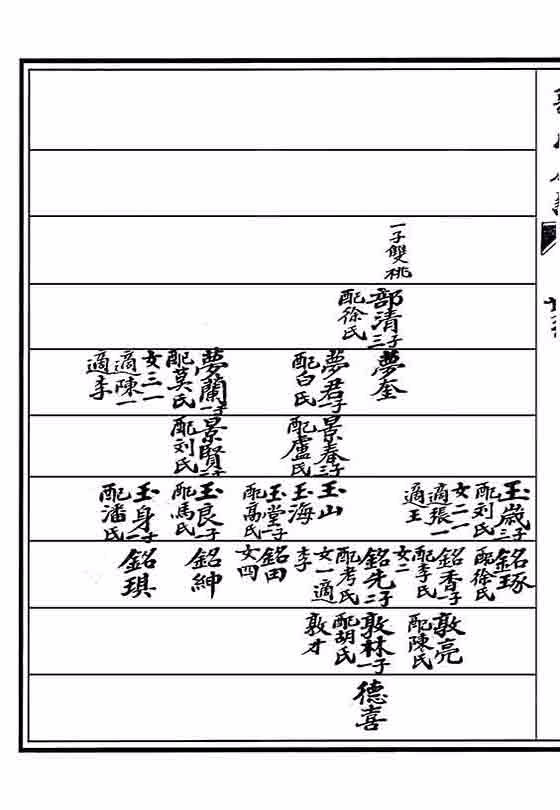 一子雙桃
部清三子
配徐氏
夢奎
夢君一子
配白氏
夢蘭一子
配莫氏
女三一
適陳一
適李
景春三子
配盧氏
景賢二子
配刘氏
玉歲三子
配刘氏
女二一
適張一
適王
玉山
玉海
玉堂一子
配高氏
玉良一子
配馬氏
玉身一子
配潘氏
銘琢
配徐氏
銘香一子
配李氏
女二
銘先二子
配考氏
女一適
李
銘田
女四
銘紳
銘琪
敦亮
配陳氏
敦林一子
配胡氏
敦才
德喜